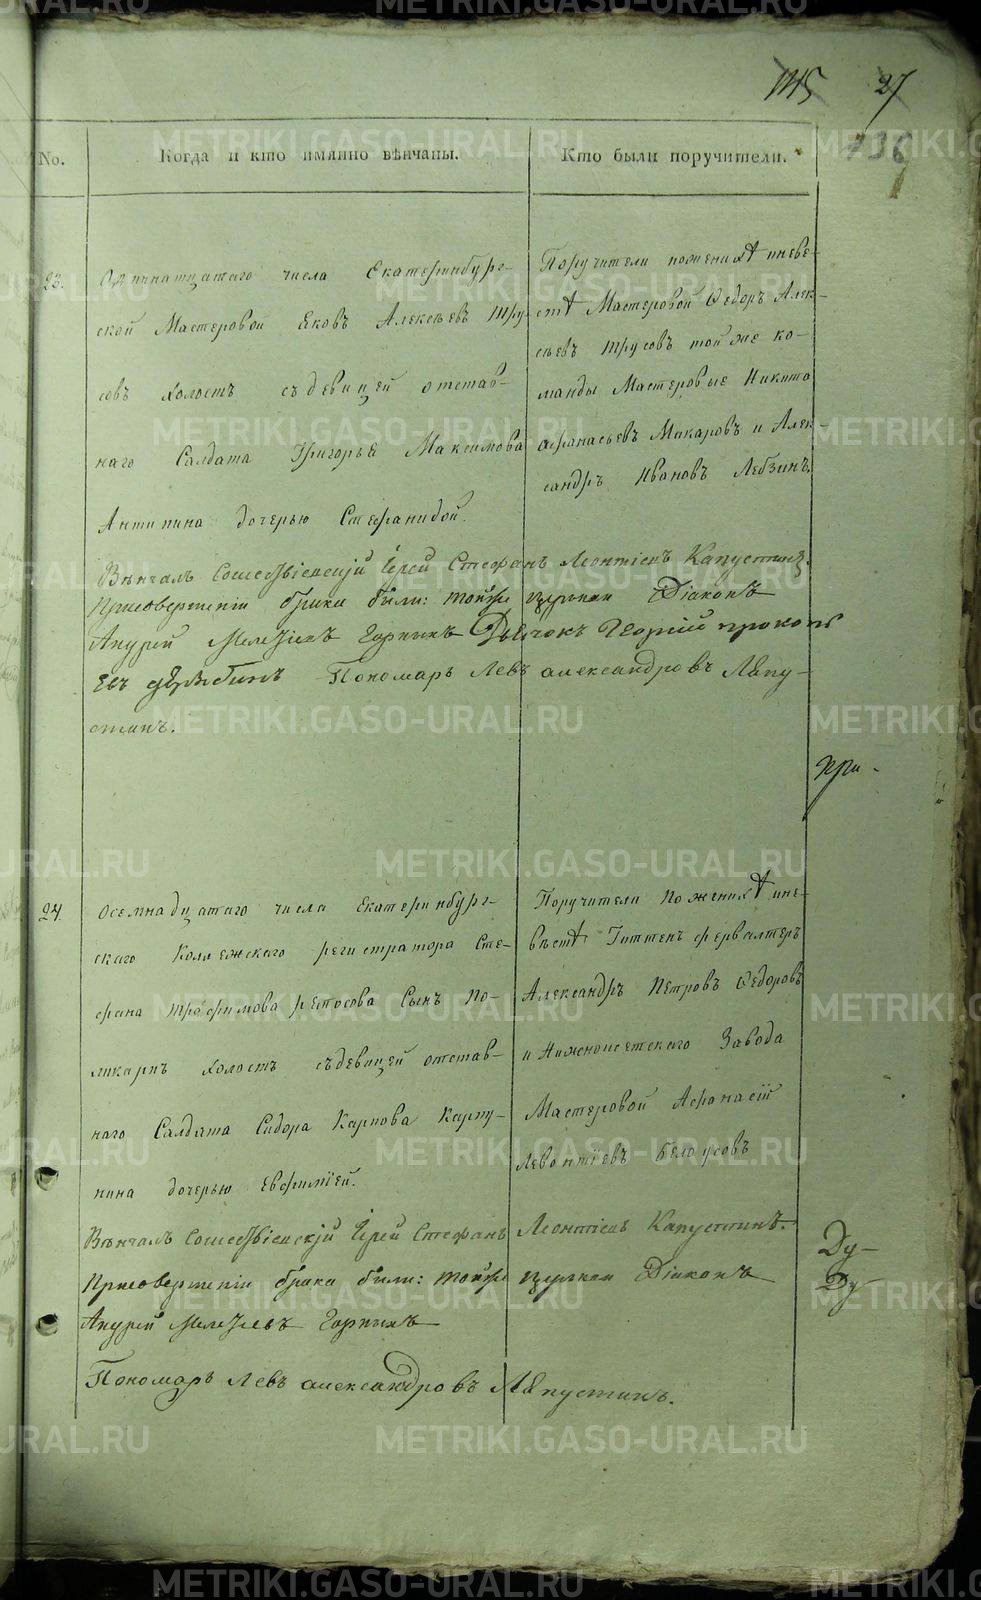 145 27
736
No. Когда и кто имянно вѣнчаны. Кто были поручители.
23. Одиннатцатаго числа Екатеринбург-
ской Мастеровой Яковъ Алексѣевъ Тру
совъ холостъ съ девицей отстав-
наго Салдата Григорья Максимова
Антипина дочерью Стефанидой.
Поручители по женихѣ и неве-
стѣ Мастеровой Ѳедоръ Алек-
сѣевъ Трусовъ той же ко-
манды Мастеровые Никита
Афонасьевъ Макаровъ и Алек-
сандръ Ивановъ Лебзинъ.
Вѣнчалъ Сошествіевскій Іерей Стефанъ Леонтіевъ Капустинъ.
При совершеніи брака были: тойже церкви Діаконъ
Андрей Горныхъ Дьячокъ Георгій прокопь
евъ Пономарь Левъ александровъ Лапу-
стинъ.
При-
24. Осемнадцатаго числа Екатеринбург-
скаго Коллежскаго регистратора Сте-
фана Трофимова Сынъ По-
ликарпъ холостъ съ девицей отстав-
наго Салдата Сидора Карпова Карпу-
нина дочерью Евфиміей.
Поручители по женихѣ и не-
вѣстѣ Гиттенъ фервалтеръ
Александръ Петровъ Ѳедоровъ
и Нижноисетскаго Завода
Мастеровой Афонасій
Левонтіевъ Белоусовъ
Вѣнчалъ Сошествіевскій Іерей Стефанъ Леонтіевъ Капустинъ.
При совершеніи брака были: тойже церкви Діаконъ
Андрей Горныхъ
Пономарь Левъ александровъ Лапустинъ.
Ду-
Ду-
METRIKI.GASO-URAL.RU